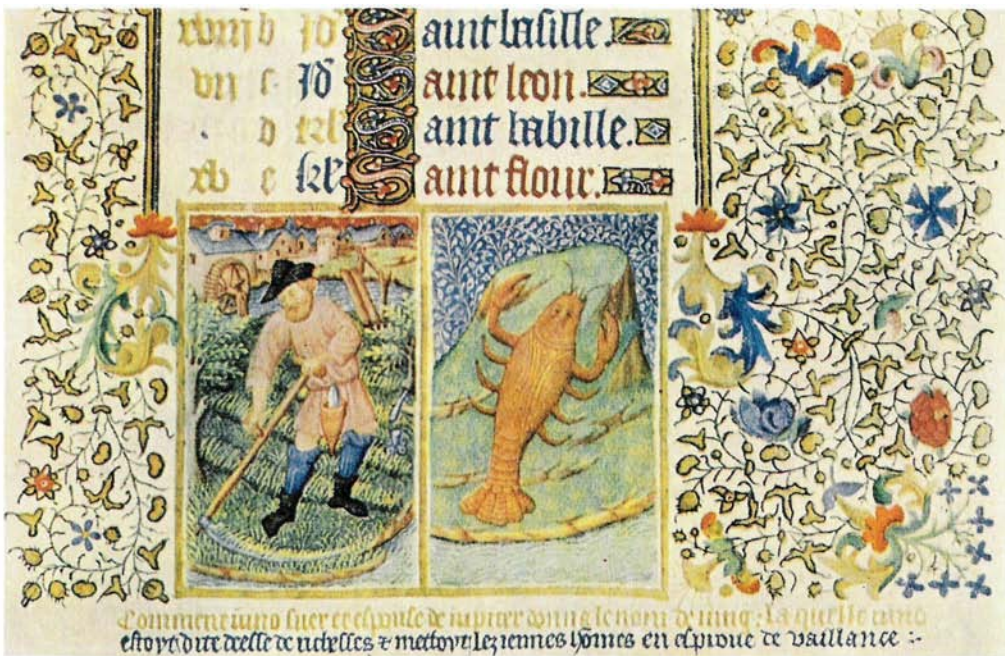 xviij b Id Saint basille.
vii c Id Saint leon.
d kl Saint babille.
xv e kl Saint flour.
Comment iuno suer et espouse de iupiter donna le nom de iuing. La quelle iuno
estoyt dite deesse de richesses & mettoyt lez iennes hõmes en espreuve de vaillance :-